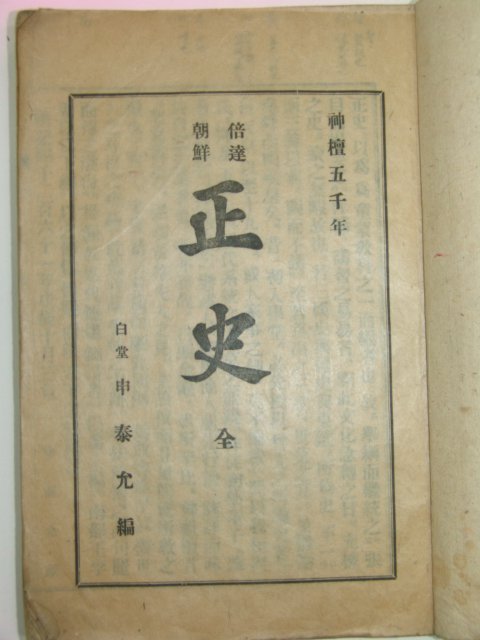 神檀五千年
倍達
朝鮮
正史 全
白堂 申泰允編